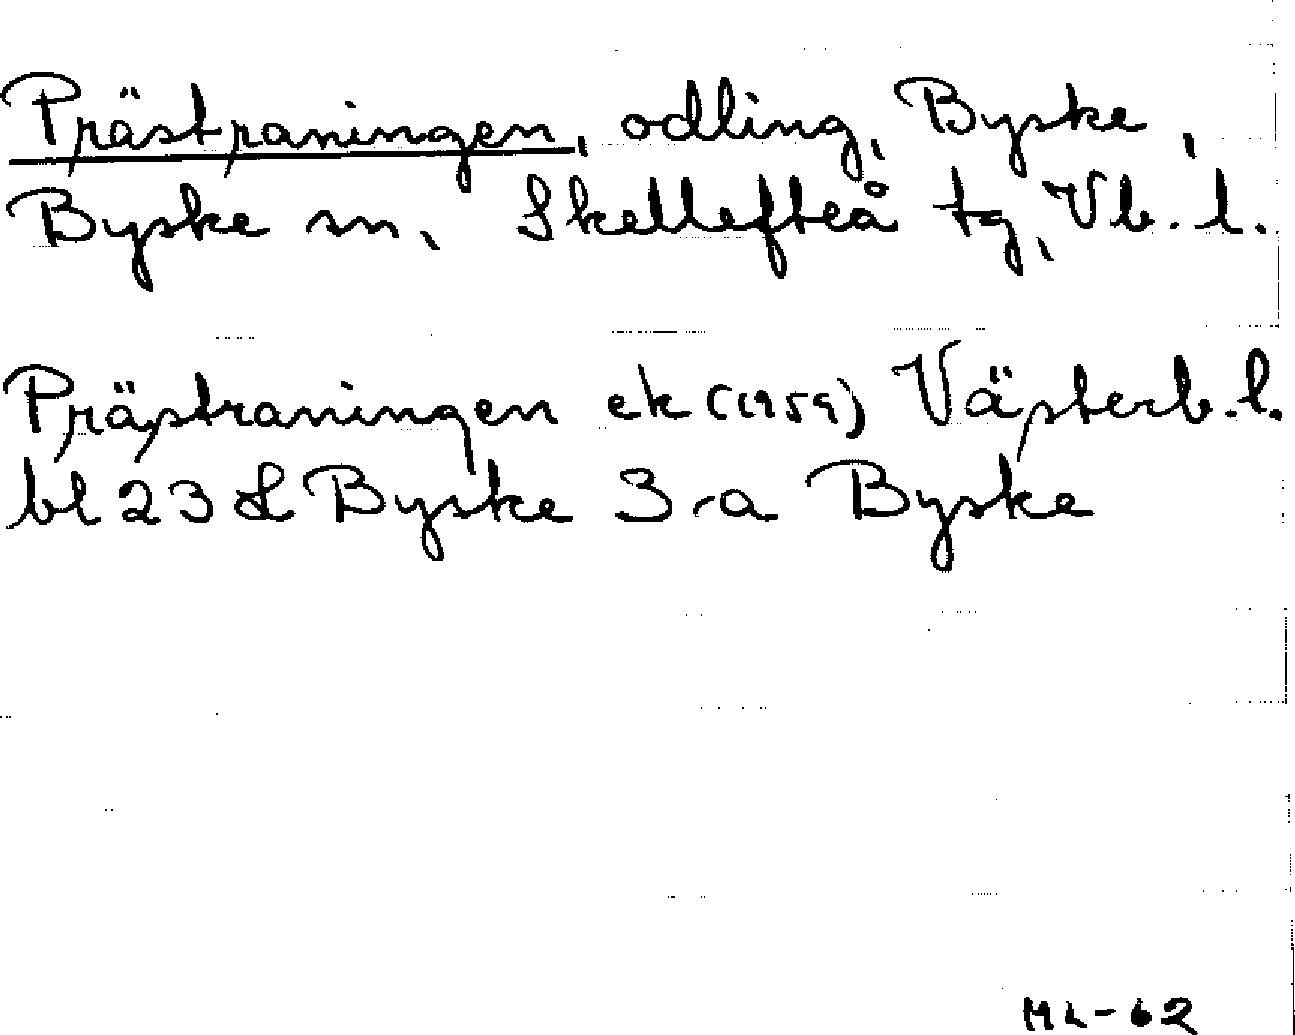 Prästraningen, odling, Byske,
Byske sn, Skellefteå tg, Vb. l.
Prästraningen ek (1959) Västerb. l.
bl 23 L Byske 3-a Byske
ML-62